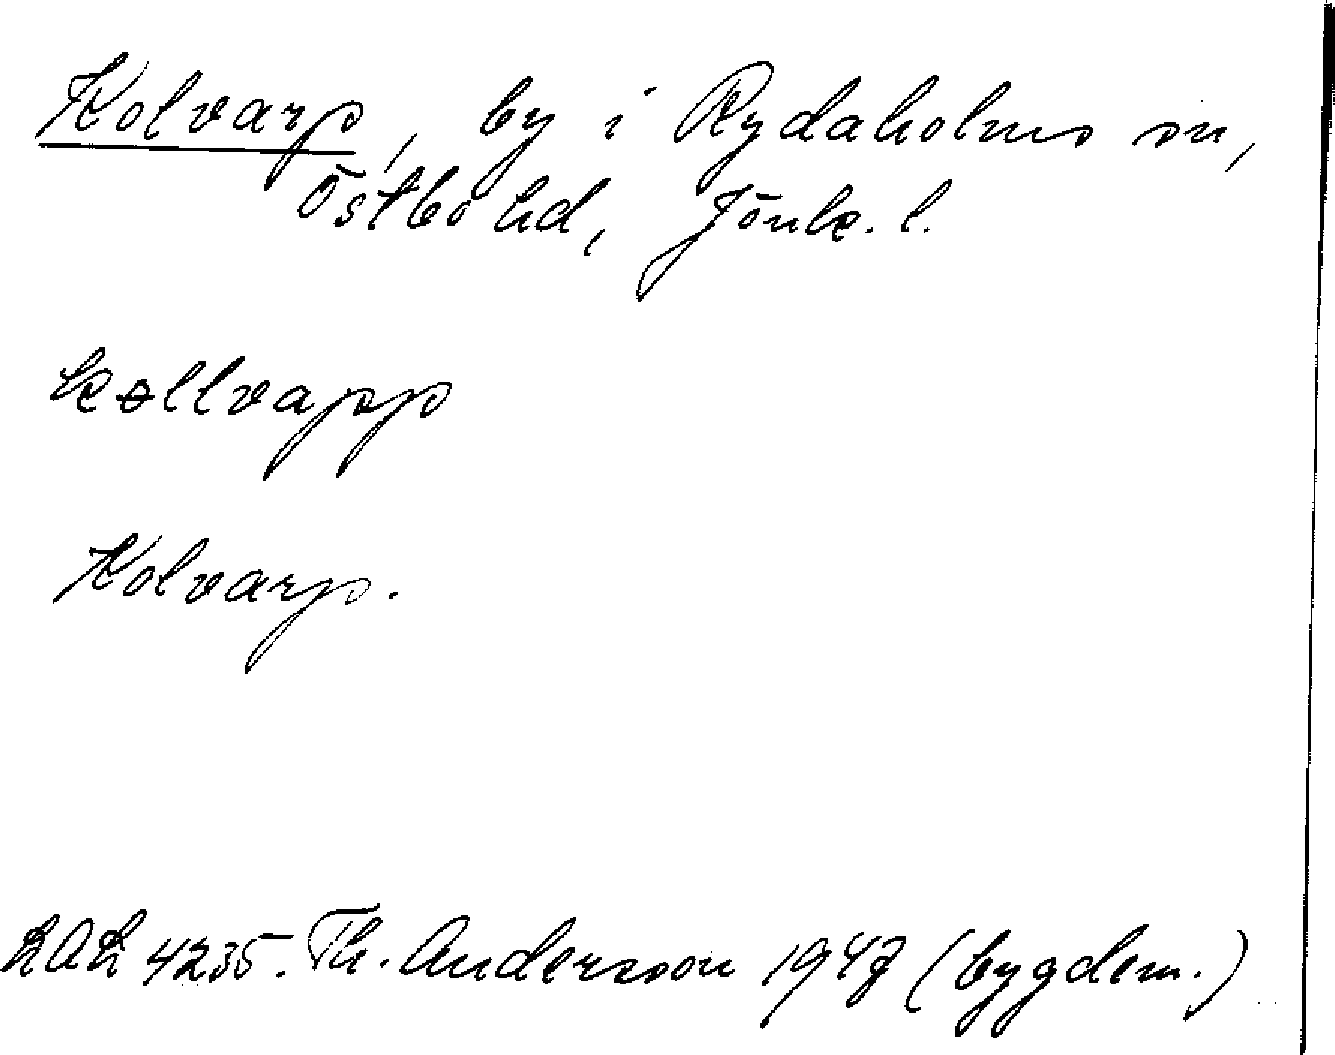 Kolvarp, by i Rydaholms sn,
Östbo hd, Jönk. l.
kɵllvapp
Kolvarp.
LAL 4235. Th. Andersson 1947 (bygdem.)